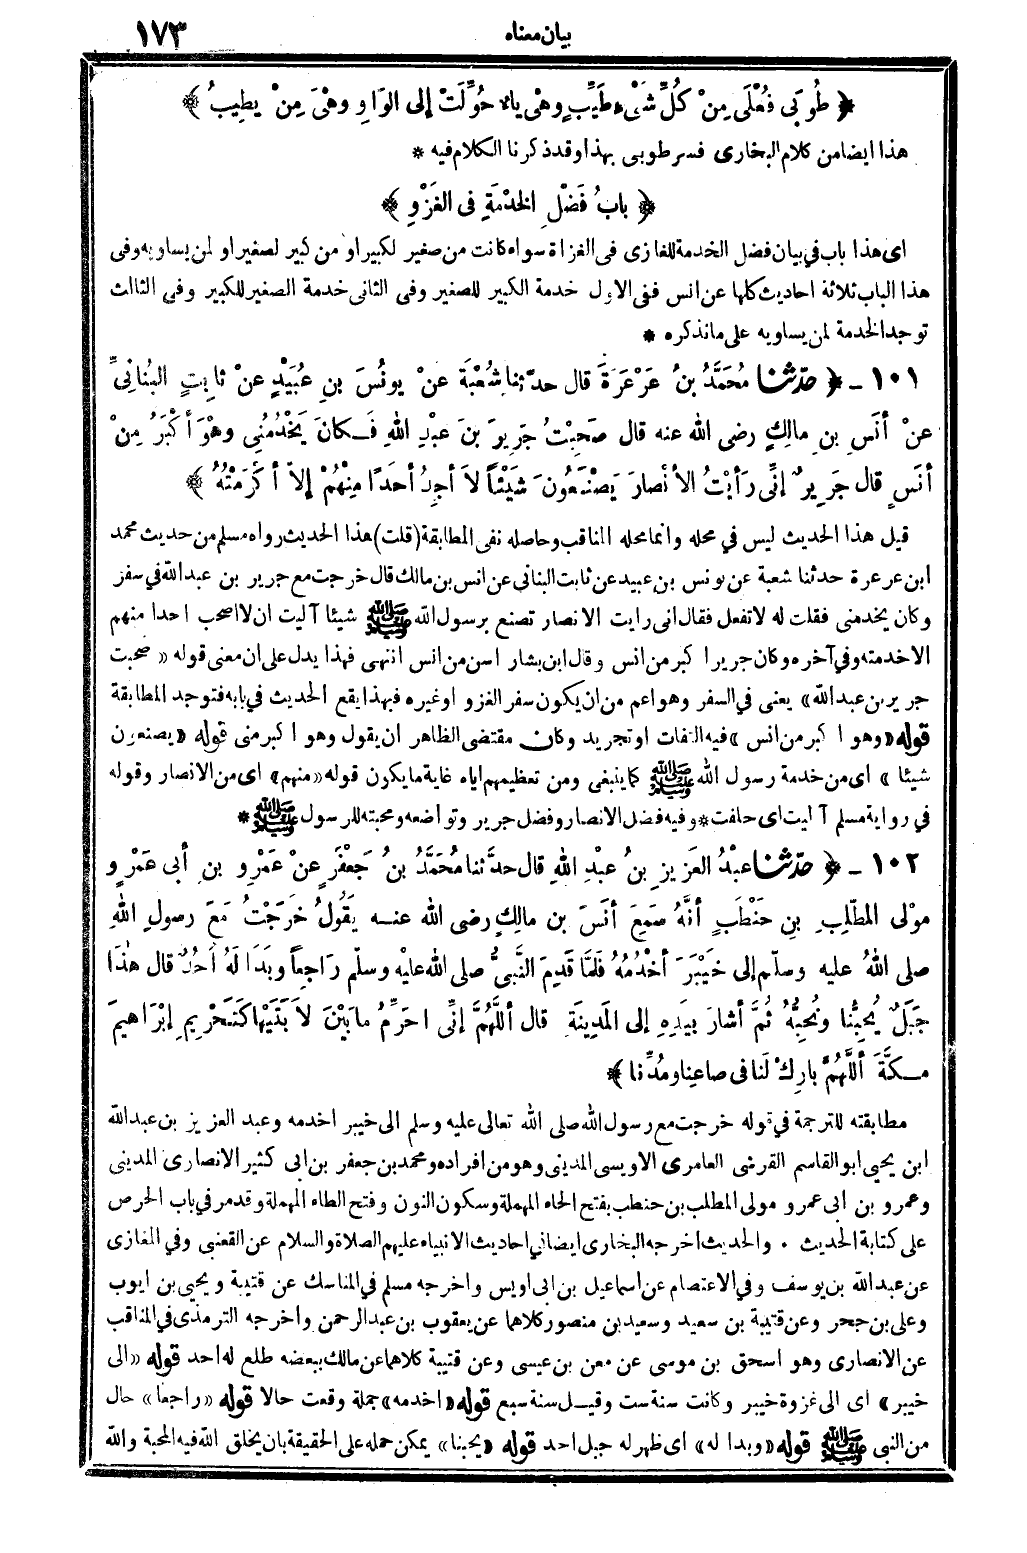 بيان معناه ١٧٣
﴿ طُوبَى فُعْلَى مِنْ كُلِّ شَىْءٍ طَيِّبٍ وهْىَ ياءٌ حُوِّلَتْ إلى الوَاوِ وهْىَ مِنْ يطِيبُ ﴾
هذا ايضا من كلام البخارى فسر طوبى بهذا وقد ذكرنا الكلام فيه *
﴿ بابُ فَضْلِ الخِدْمَةِ فى الغَزْوِ ﴾
اى هذا باب في بيان فضل الخدمة للغازى فى الغزاة سواء كانت من صغير لكبير او من كبير لصغير او لمن يساويه وفى
هذا الباب ثلاثة احاديث كلها عن انس ففى الاول خدمة الكبير للصغير وفى الثانى خدمة الصغير للكبير وفى الثالث
توجد الخدمة لمن يساويه على ما نذكره *
١٠١ ـ ﴿ حدّثنا مُحَمَّدُ بنُ عَرْعَرَةَ قال حدّثنا شُعْبَةُ عنْ يونُسَ بنِ عُبَيْدٍ عنْ ثابِتٍ البُنانِىِّ
عنْ أنَسِ بنِ مالِكٍ رضى الله عنه قال صَحِبْتُ جَرِيرَ بنَ عبْدِ اللهِ فَكانَ يَخْدُمُنِى وهْوَ أكْبَرُ مِنْ
أنَسٍ قال جَرِيرٌ إنِّى رَأيْتُ الأنْصارَ يَصْنَعُونَ شَيْئاً لاَ أجِدُ أحَدًا مِنْهُمْ إلاّ أكْرَمْتُهُ ﴾
قيل هذا الحديث ليس في محله وانما محله المناقب وحاصله نفى المطابقة (قلت) هذا الحديث رواه مسلم من حديث محمد
ابن عرعرة حدثنا شعبة عن يونس بن عبيد عن ثابت البنانى عن انس بن مالك قال خرجت مع جرير بن عبدالله في سفر
وكان يخدمنى فقلت له لا تفعل فقال انى رايت الانصار تصنع برسول الله ﷺ شيئا آليت ان لا اصحب احدا منهم
الا خدمته وفي آخره وكان جرير اكبر من انس وقال ابن بشار اسن من انس انتهى فهذا يدل على ان معنى قوله «صحبت
جرير بن عبدالله» يعنى في السفر وهو اعم من ان يكون سفر الغزو او غيره فبهذا يقع الحديث في بابه فتوجد المطابقة
قوله «وهو اكبر من انس» فيه التفات او تجريد وكان مقتضى الظاهر ان يقول وهو اكبر منى قوله «يصنعون
شيئا» اى من خدمة رسول الله ﷺ كما ينبغى ومن تعظيمهم اياه غاية ما يكون قوله «منهم» اى من الانصار وقوله
في رواية مسلم آليت اى حلفت * وفيه فضل الانصار وفضل جرير وتواضعه ومحبته للرسول ﷺ *
١٠٢ ـ ﴿ حدّثنا عبْدُ العَزِيزِ بنُ عبْدِ اللهِ قال حدَّثنا مُحَمَّدُ بنُ جَعْفَرٍ عنْ عَمْرِو بنِ أبى عَمْرٍو
مولى المطّلِبِ بنِ حَنْطَبٍ أنَّهُ سَمِعَ أنَسَ بن مالِكٍ رضى الله عنه يَقُولُ خَرَجْتُ مَعَ رسولِ اللهِ
صلى اللهُ عليه وسلّم إلى خَيْبَرَ أخْدُمُهُ فَلَمَّا قَدِمَ النَّبىُّ صلى الله عليْه وسلّم رَاجِعاً وبَدَا لَهُ أُحُدٌ قال هٰذَا
جَبَلٌ يُحِبُّنا ونُحِبُّهُ ثُمَّ أشارَ بِيَدِهِ إلى المَدِينَةِ قال أللَّهُمَّ إنِّى أحَرِّمُ ما بَيْنَ لاَبَتَيْها كَتَحْرِيمِ إبْرَاهِيمَ
مَكَّةَ أللَّهُمَّ بارِكْ لَنا فى صاعِنا ومُدِّنا ﴾
مطابقته للترجمة في قوله خرجت مع رسول الله صلى الله تعالى عليه وسلم الى خيبر اخدمه وعبد العزيز بن عبدالله
ابن يحيى ابو القاسم القرشى العامرى الاويسى المدينى وهو من افراده ومحمد بن جعفر بن ابى كثير الانصارى المدينى
وعمرو بن ابى عمرو مولى المطلب بن حنطب بفتح الحاء المهملة وسكون النون وفتح الطاء المهملة وقد مر في باب الحرص
على كتابة الحديث • والحديث اخرجه البخارى ايضا في احاديث الانبياء عليهم الصلاة والسلام عن القعنبى وفي المغازى
عن عبدالله بن يوسف وفي الاعتصام عن اسماعيل بن ابى اويس واخرجه مسلم في المناسك عن قتيبة ويحيى بن ايوب
وعلى بن حجر وعن قتيبة بن سعيد وسعيد بن منصور كلاهما عن يعقوب بن عبدالرحمن واخرجه الترمذى في المناقب
عن الانصارى وهو اسحق بن موسى عن معن بن عيسى وعن قتيبة كلاهما عن مالك ببعضه طلع له احد قوله «الى
خيبر» اى الى غزوة خيبر وكانت سنة ست وقيل سنة سبع قوله «اخدمه» جملة وقعت حالا قوله «راجعا» حال
من النبى ﷺ قوله «وبدا له» اى ظهر له جبل احد قوله «يحبنا» يمكن حمله على الحقيقة بان يخلق الله فيه المحبة والله